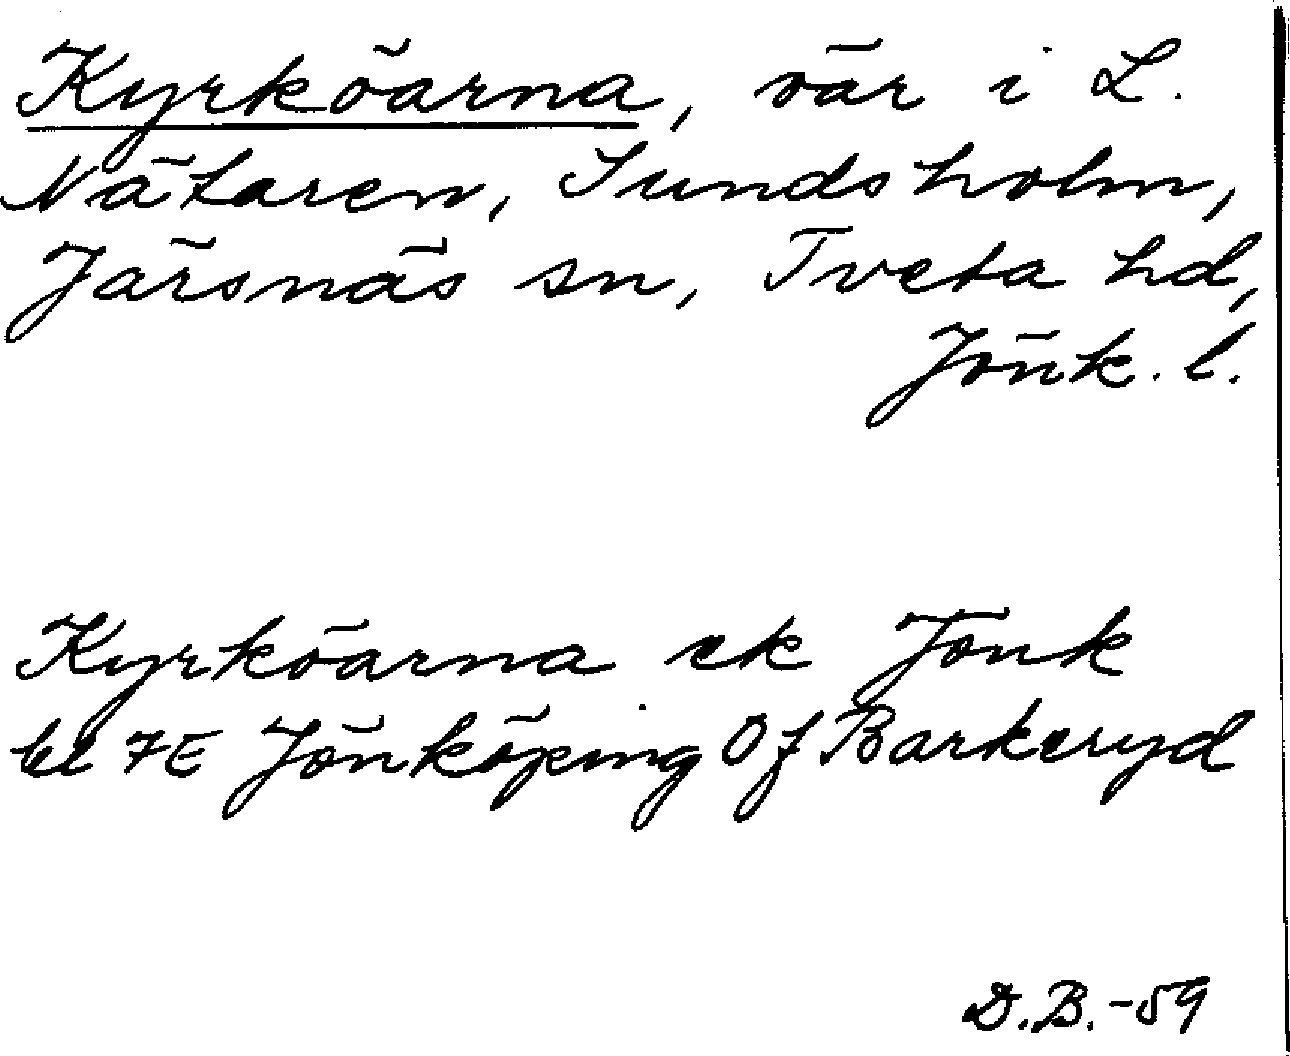 Kyrköarna, öar i L.
Nätaren, Sundsholm,
Järsnäs sn, Tveta hd,
Jönk. l.
Kyrköarna ek Jönk
bl 7E Jönköping Of Barkeryd
D.B.-59